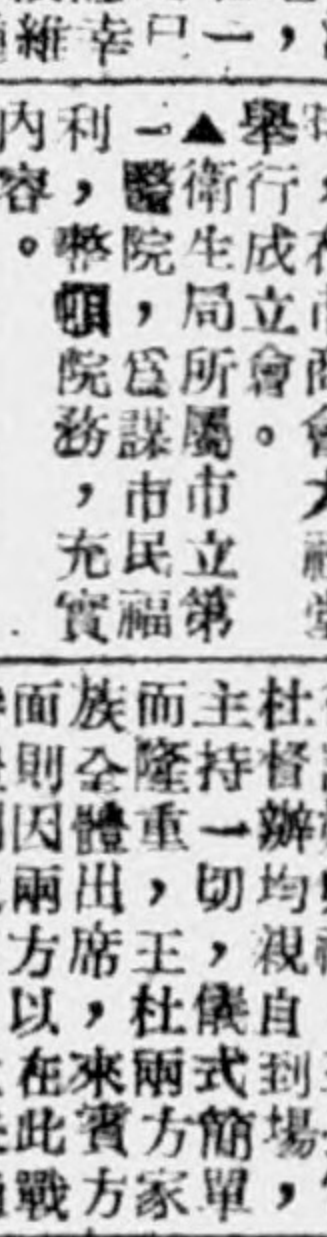 維幸已一，
舉行成立會。
▲衛生局所屬市立第
一醫院，爲謀市民福
利，整頓院務，充實
內容。
杜督辦均視自到場，
主持一切，儀式簡單
而隆重，王杜兩方家
族全體出席，來賓方
面則因兩方以在此戰